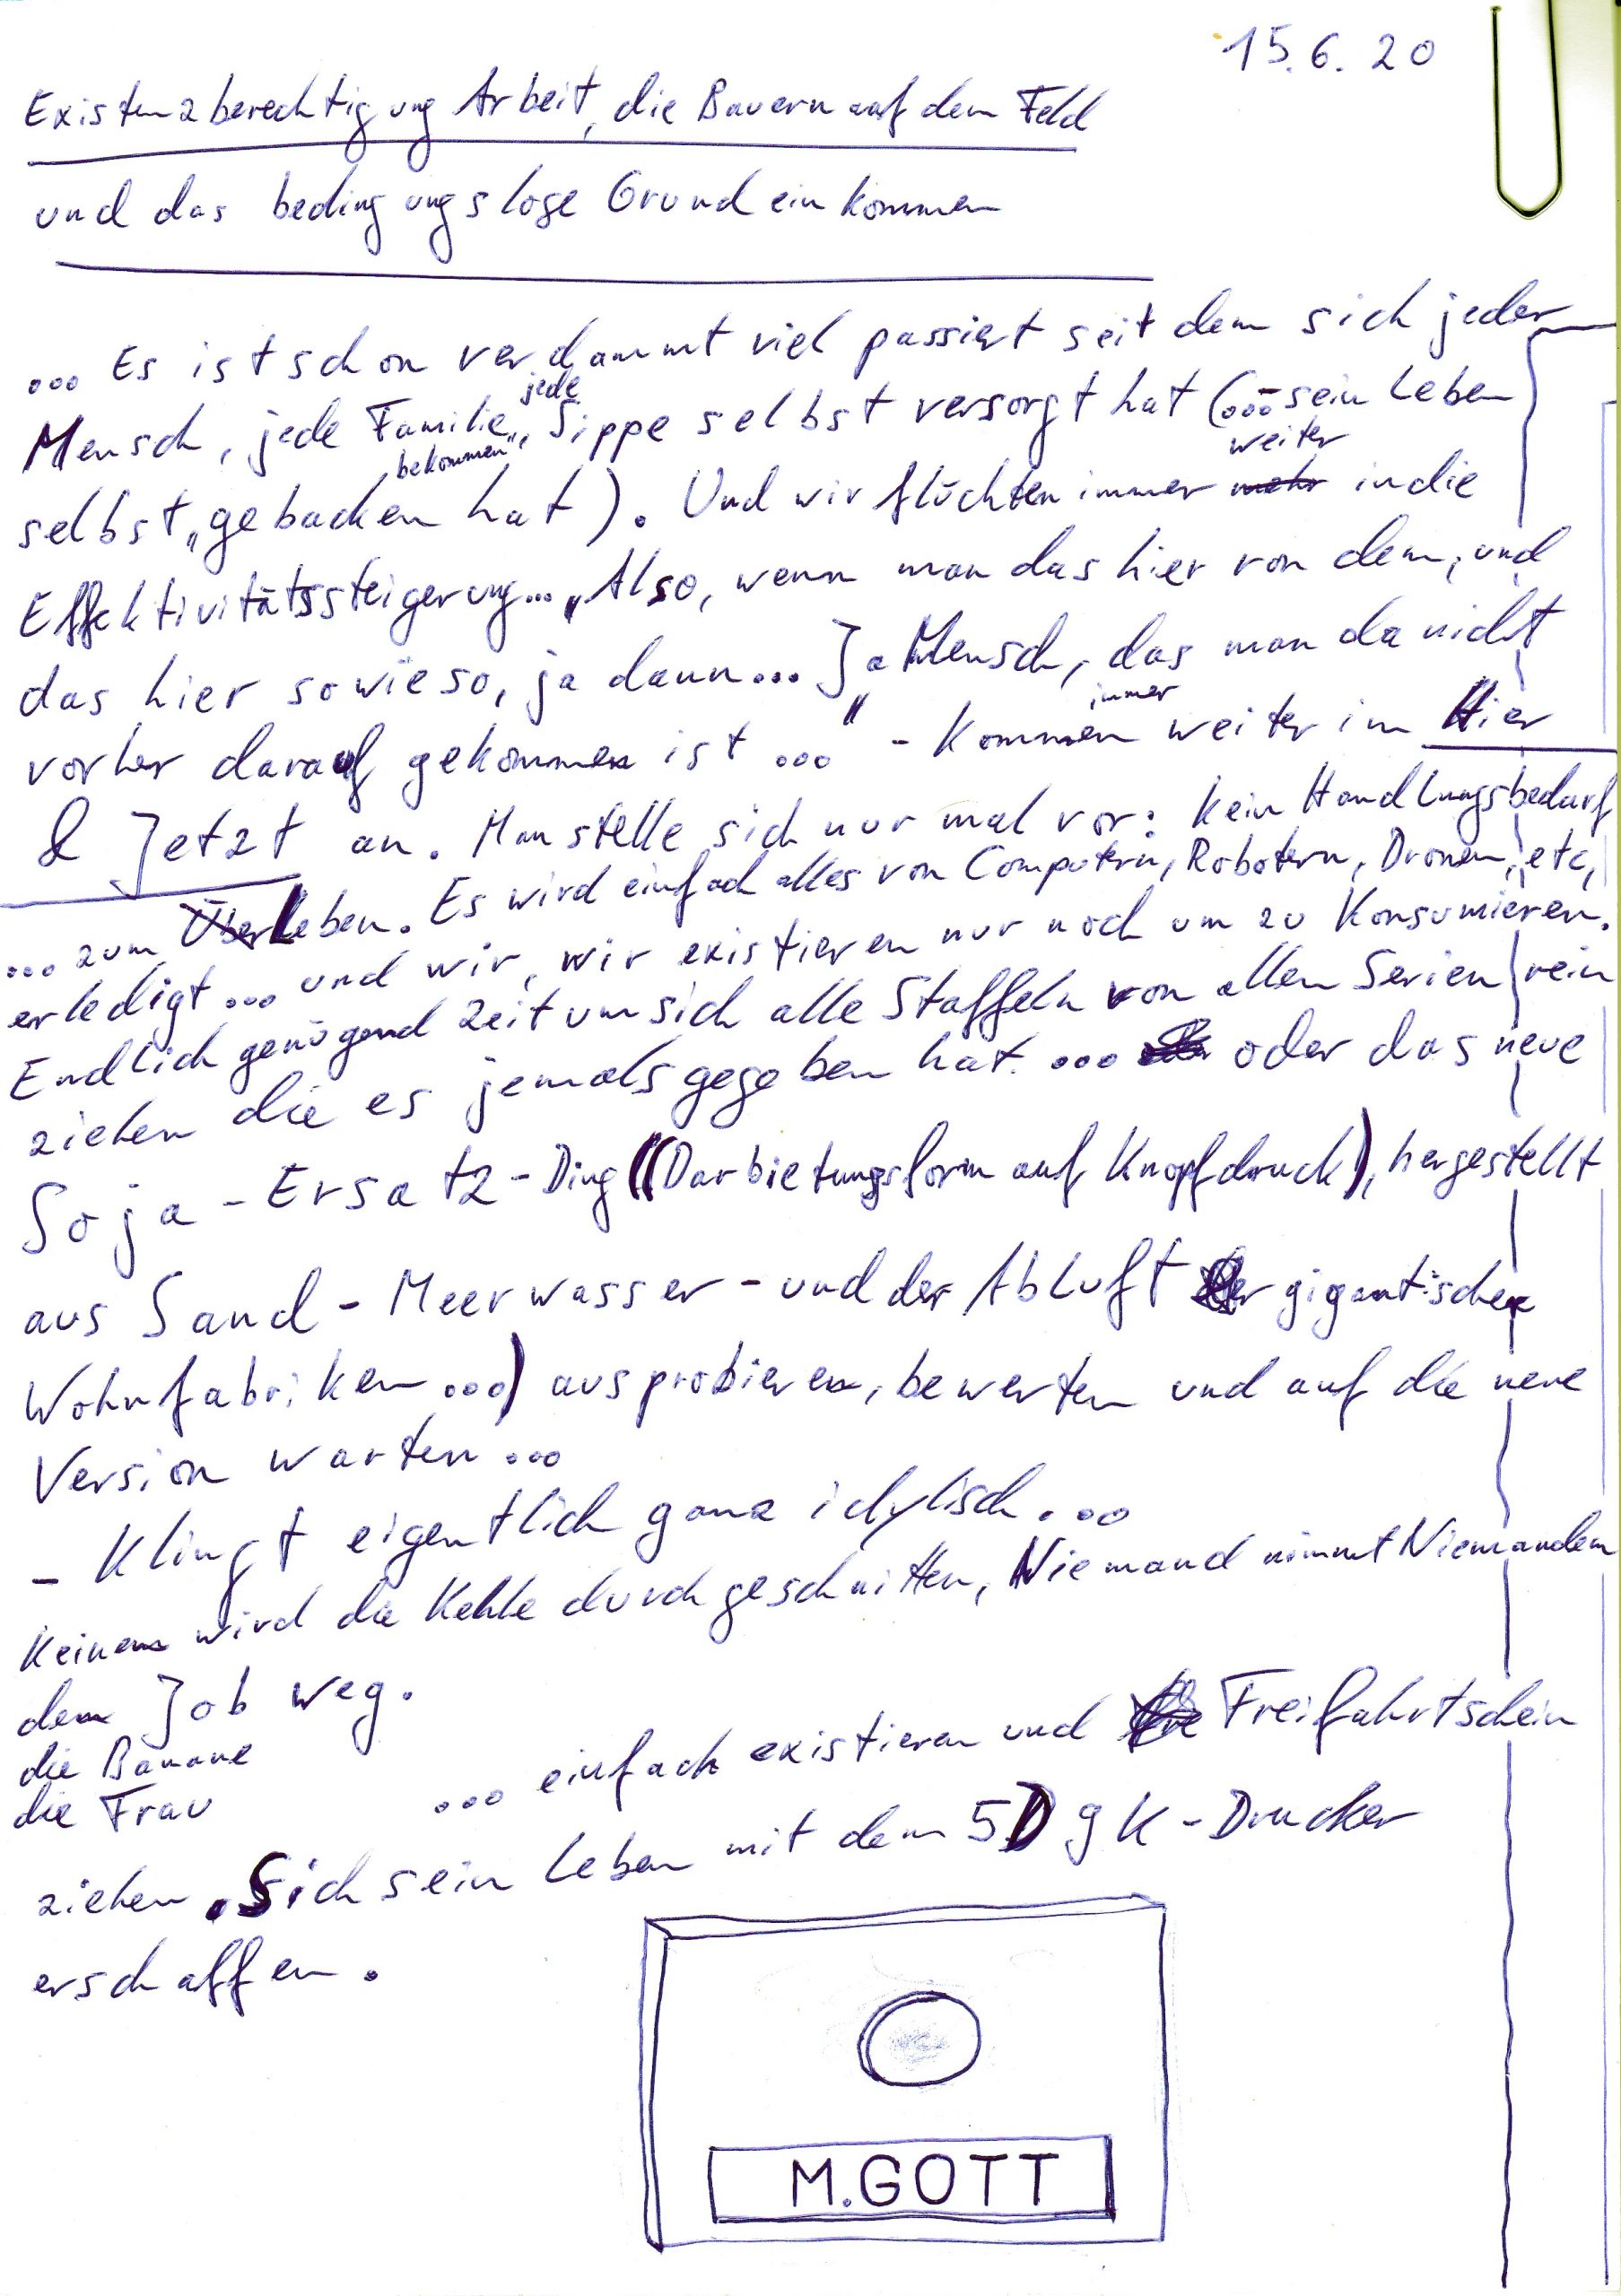 15.6.20
Existenzberechtigung Arbeit, die Bauern auf dem Feld
und das bedingungslose Grundeinkommen
... Es ist schon verdammt viel passiert seit dem sich jeder
Mensch, jede Familie, jede Sippe selbst versorgt hat (... sein Leben
selbst „gebacken bekommen" hat). Und wir flüchten immer weiter in die
Effektivitätssteigerung... „Also, wenn man das hier von dem, und
das hier sowieso, ja dann... Ja Mensch, das man da nicht
vorher darauf gekommen ist ..." - Kommen immer weiter im Hier
& Jetzt an. Man stelle sich nur mal vor: Kein Handlungsbedarf
... zum Leben. Es wird einfach alles von Computern, Robotern, Dronen, etc,
erledigt ... und wir, wir existieren nur noch um zu Konsumieren.
Endlich genügend Zeit um sich alle Staffeln von allen Serien rein
ziehen die es jemals gegeben hat. ... oder das neue
Soja-Ersatz-Ding ((Darbietungsform auf Knopfdruck), hergestellt
aus Sand - Meerwasser - und der Abluft gigantischer
Wohnfabriken ...) ausprobieren, bewerten und auf die neue
Version warten ...
- Klingt eigentlich ganz idylisch...
Keinem wird die Kehle durchgeschnitten, Niemand nimmt Niemandem
den Job weg.
die Banane
die Frau
... einfach existieren und Freifahrtschein
ziehen. Sich sein Leben mit dem 5D gK-Drucker
erschaffen.
M.GOTT